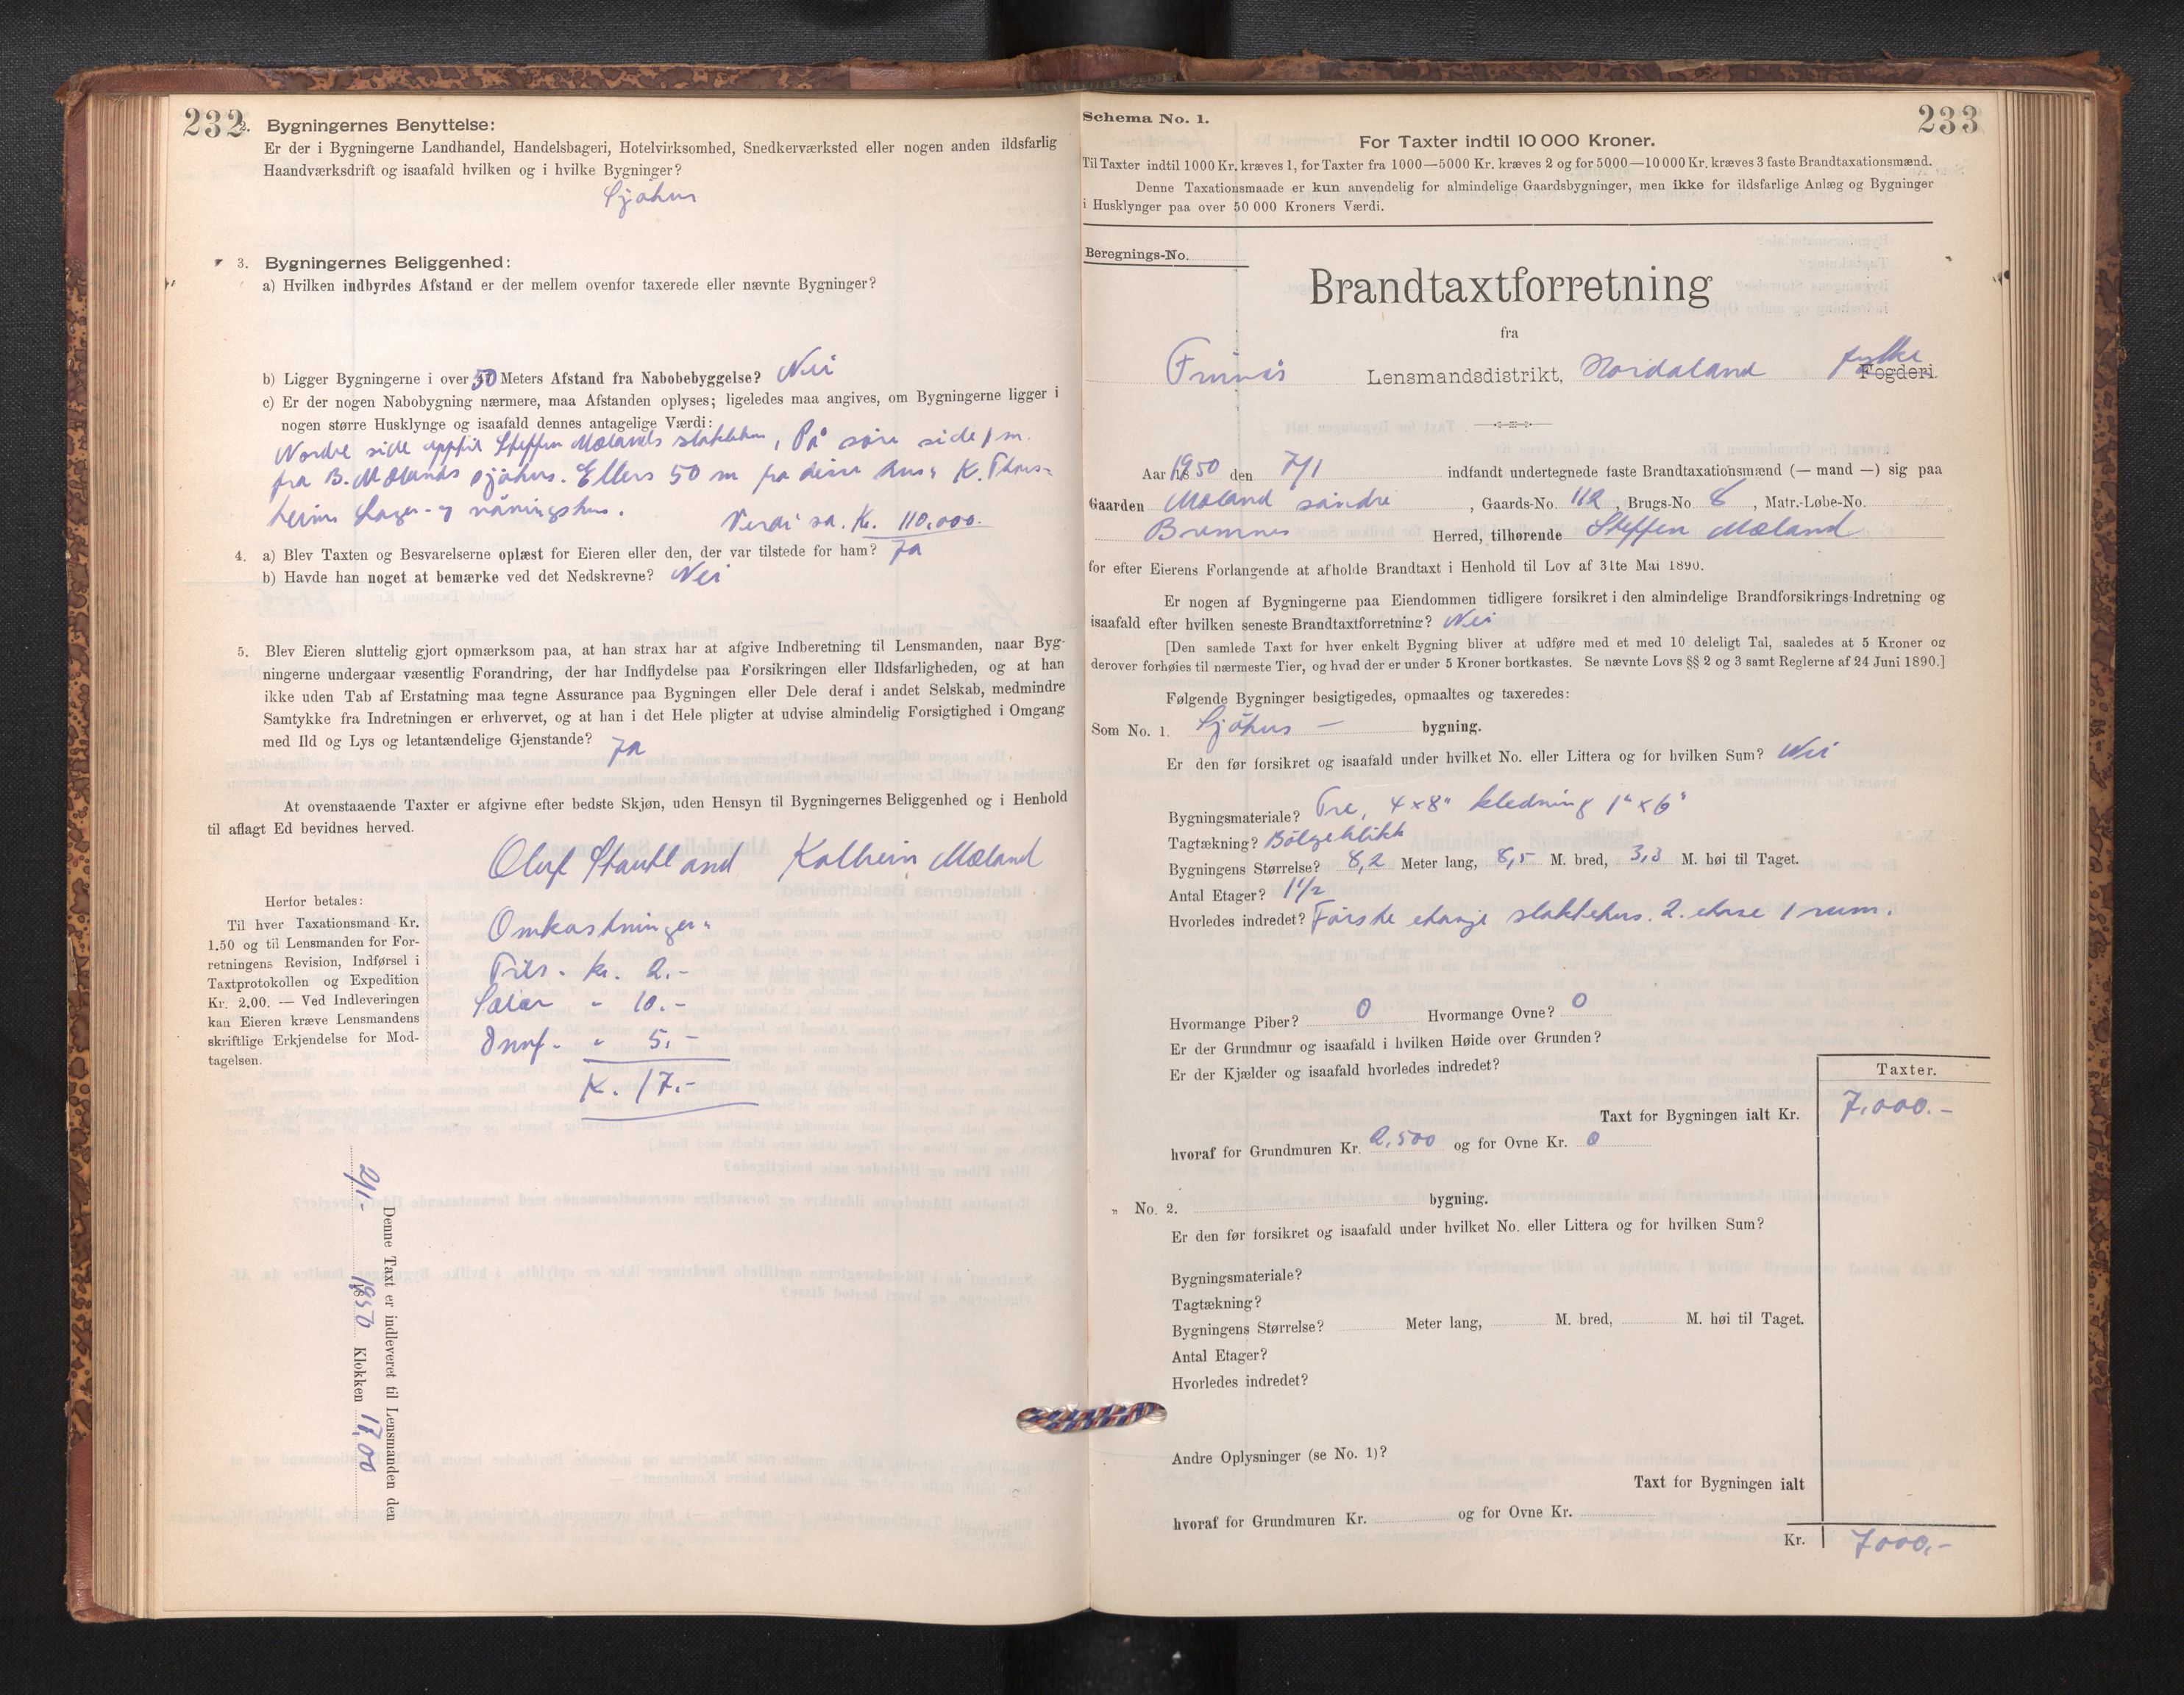 232
2. Bygningernes Benyttelse:
Er der i Bygningerne Landhandel, Handelsbageri, Hotelvirksomhed, Snedkerværksted eller nogen anden ildsfarlig
Haandværksdrift og isaafald hvilken og i hvilke Bygninger?
Sjøhus
3. Bygningernes Beliggenhed:
a) Hvilken indbyrdes Afstand er der mellem ovenfor taxerede eller nævnte Bygninger?
b) Ligger Bygningerne i over 50 Meters Afstand fra Nabobebyggelse? Nei
c) Er der nogen Nabobygning nærmere, maa Afstanden oplyses; ligeledes maa angives, om Bygningerne ligger i
nogen større Husklynge og isaafald dennes antagelige Værdi:
Nordre side opptil Steffen Mælands slaktehus, På søre side 1 m.
fra B. Mælands sjøhus. Ellers 50 m fra disse hus: K. Thors-
heims Lager- og våningshus.
Verdi sa. Kr. 110.000.
4. a) Blev Taxten og Besvarelserne oplæst for Eieren eller den, der var tilstede for ham? Ja
b) Havde han noget at bemærke ved det Nedskrevne? Nei
5. Blev Eieren sluttelig gjort opmærksom paa, at han strax har at afgive Indberetning til Lensmanden, naar Byg-
ningerne undergaar væsentlig Forandring, der har Indflydelse paa Forsikringen eller Ildsfarligheden, og at han
ikke uden Tab af Erstatning maa tegne Assurance paa Bygningen eller Dele deraf i andet Selskab, medmindre
Samtykke fra Indretningen er erhvervet, og at han i det Hele pligter at udvise almindelig Forsigtighed i Omgang
med Ild og Lys og letantændelige Gjenstande? Ja
At ovenstaaende Taxter er afgivne efter bedste Skjøn, uden Hensyn til Bygningernes Beliggenhed og i Henhold
til aflagt Ed bevidnes herved.
Oluf Stautland Kolbein Mæland
Herfor betales:
Til hver Taxationsmand Kr.
1.50 og til Lensmanden for For-
retningens Revision, Indførsel i
Taxtprotokollen og Expedition
Kr. 2.00. — Ved Indleveringen
kan Eieren kræve Lensmandens
skriftlige Erkjendelse for Mod-
tagelsen.
Omkostninger:
Tils. kr. 2.-
Salær " 10.-
Innf. " 5.-
K. 17.-
Denne Taxt er indleveret til Lensmanden den
2/1- 1950 Klokken 17,00
Schema No. 1.
233
For Taxter indtil 10 000 Kroner.
Til Taxter indtil 1000 Kr. kræves 1, for Taxter fra 1000—5000 Kr. kræves 2 og for 5000—10 000 Kr. kræves 3 faste Brandtaxationsmænd.
Denne Taxationsmaade er kun anvendelig for almindelige Gaardsbygninger, men ikke for ildsfarlige Anlæg og Bygninger
i Husklynger paa over 50 000 Kroners Værdi.
Beregnings-No.
Brandtaxtforretning
fra
Finnås Lensmandsdistrikt, Hordaland fylke Fogderi.
Aar 1950 den 7/1 indfandt undertegnede faste Brandtaxationsmænd (— mand —) sig paa
Gaarden Mæland søndre, Gaards-No. 112, Brugs-No. 8, Matr.-Løbe-No.
Bremnes Herred, tilhørende Steffen Mæland
for efter Eierens Forlangende at afholde Brandtaxt i Henhold til Lov af 31te Mai 1890.
Er nogen af Bygningerne paa Eiendommen tidligere forsikret i den almindelige Brandforsikrings-Indretning og
isaafald efter hvilken seneste Brandtaxtforretning? Nei
[Den samlede Taxt for hver enkelt Bygning bliver at udføre med et med 10 deleligt Tal, saaledes at 5 Kroner og
derover forhøies til nærmeste Tier, og hvad der er under 5 Kroner bortkastes. Se nævnte Lovs §§ 2 og 3 samt Reglerne af 24 Juni 1890.]
Følgende Bygninger besigtigedes, opmaaltes og taxeredes:
Som No. 1. Sjøhus — bygning.
Er den før forsikret og isaafald under hvilket No. eller Littera og for hvilken Sum? Nei
Bygningsmateriale? Tre, 4 x 8" kledning 1" x 6"
Tagtækning? Bølgeblikk
Bygningens Størrelse? 8,2 Meter lang, 8,5 M. bred, 3,3 M. høi til Taget.
Antal Etager? 1 1/2
Hvorledes indredet? Første etasje slaktehus. 2. etasje 1 rum.
Hvormange Piber? 0 Hvormange Ovne? 0
Er der Grundmur og isaafald i hvilken Høide over Grunden?
Er der Kjælder og isaafald hvorledes indredet?
Taxter.
Taxt for Bygningen ialt Kr. 7.000.-
hvoraf for Grundmuren Kr. 2,500 og for Ovne Kr. 0
" No. 2. bygning.
Er den før forsikret og isaafald under hvilket No. eller Littera og for hvilken Sum?
Bygningsmateriale?
Tagtækning?
Bygningens Størrelse? Meter lang, M. bred, M. høi til Taget.
Antal Etager?
Hvorledes indredet?
Andre Oplysninger (se No. 1)?
Taxt for Bygningen ialt
hvoraf for Grundmuren Kr. og for Ovne Kr.
Kr. 7000,-